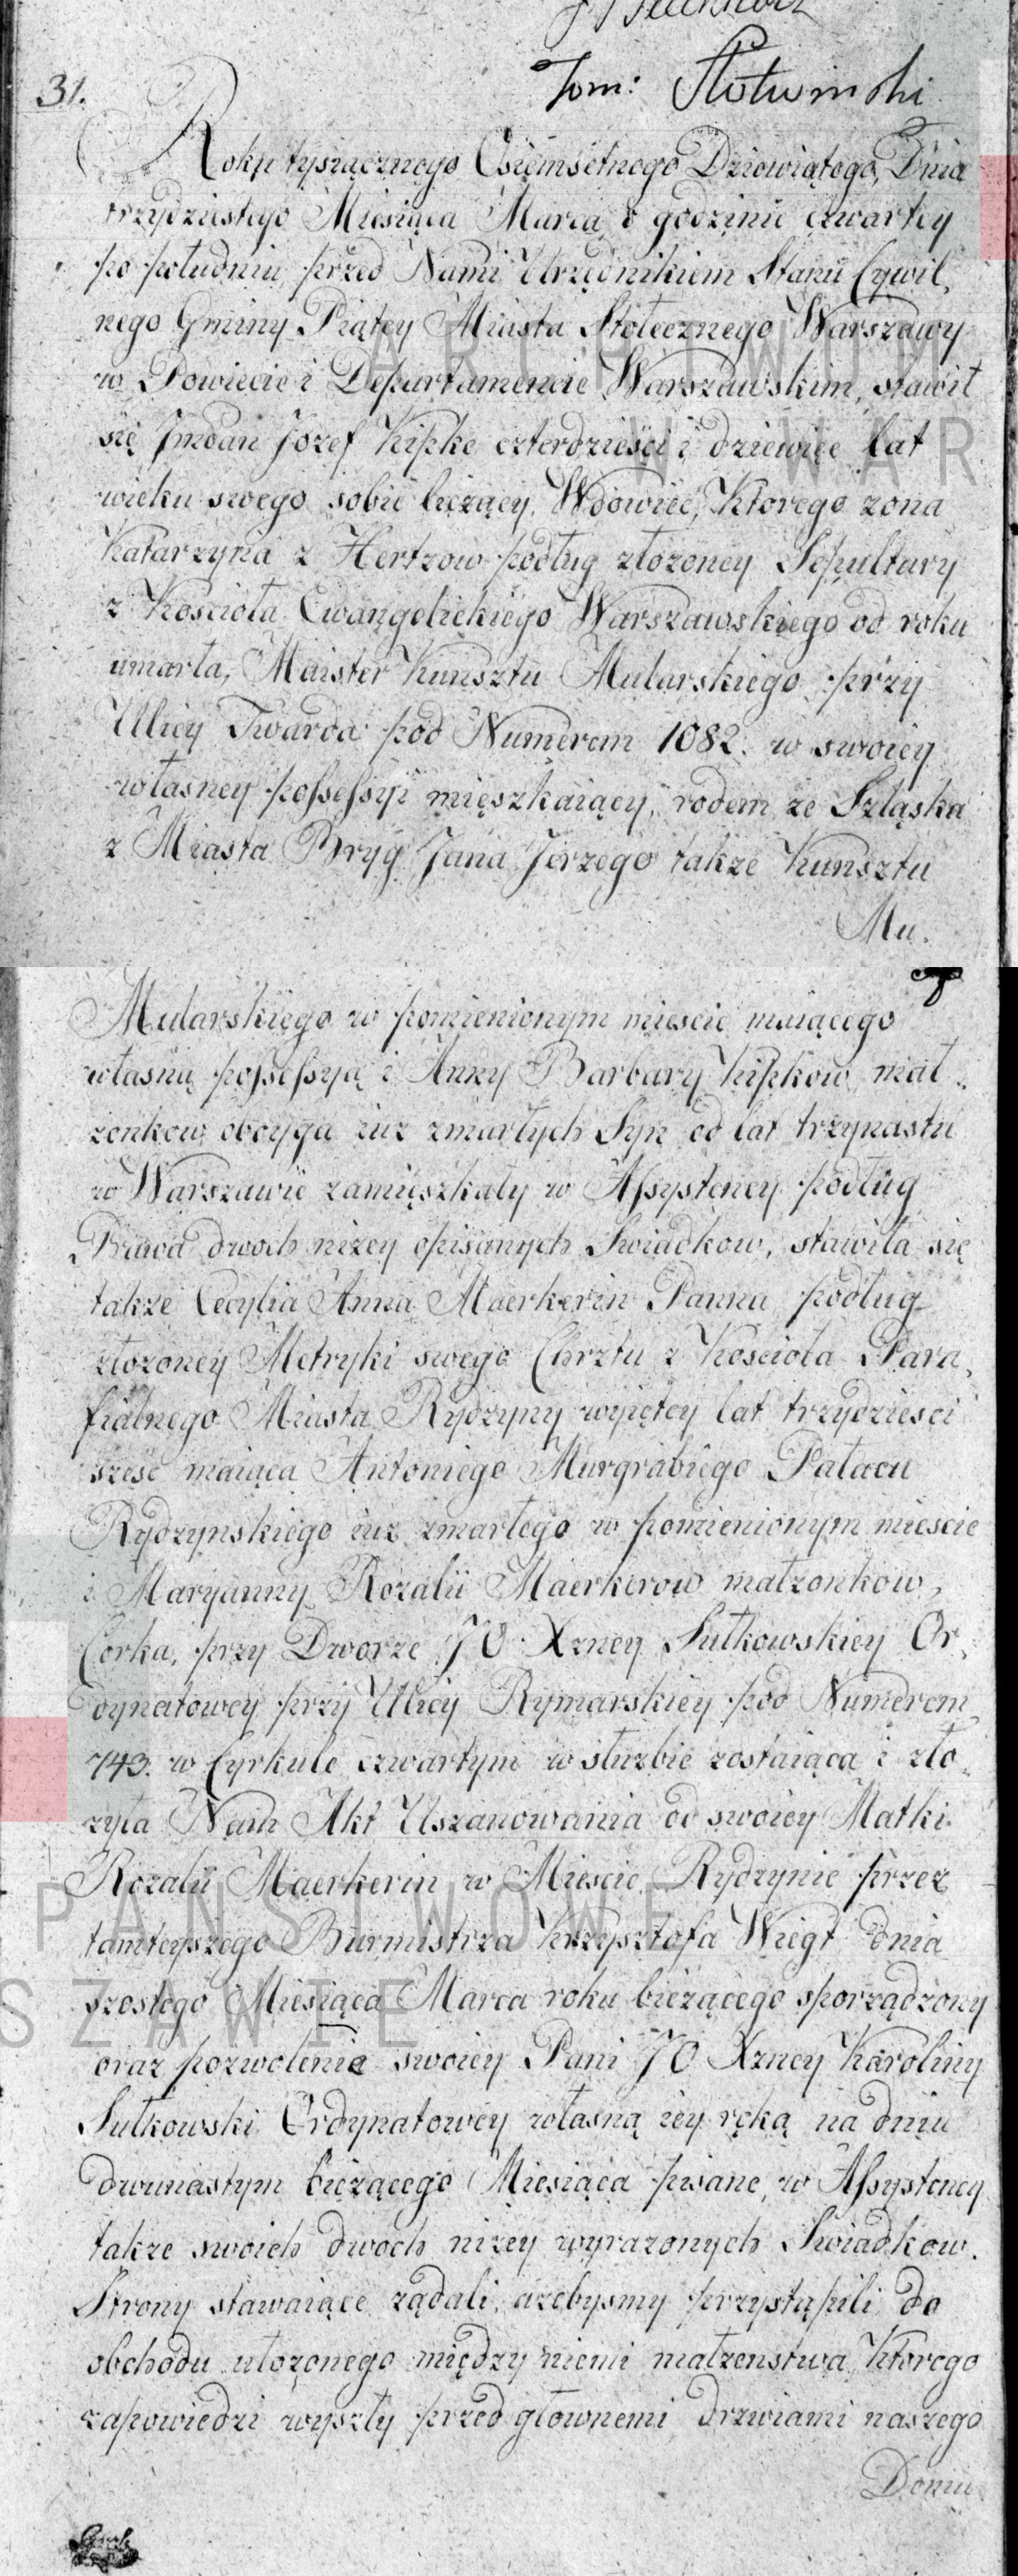 Tom: Słotwinski
31.
Roku tysiącznego Osiemsetnego Dziewiątego, Dnia
trzydziestego Miesiąca Marca o godzinie czwartey
po południu, przed Nami Urzędnikiem Stanu Cywil,
nego Gminy Piątey Miasta Stołecznego Warszawy
w Powiecie i Departamencie Warszawskim, stawił
się Jmdan Jozef Kipke czterdzieści i dziewięc lat
wieku swego sobie liczący, Wdowiec, Ktorego zona
Katarzyna z Hertzow podług złozoney Sepultury
z Koscioła Ewangelickiego Warszawskiego od roku
umarła, Maister Kunsztu Mularskiego przy
Ulicy Twarda pod Numerem 1082. w swoiey
własney possessyi mięszkaiący, rodem ze Szląska
z Miasta Bryg Jana Jerzego takze Kunsztu
Mu.
Mularskiego w pomienionym miescie maiącego
własną possessyą i Anny Barbary Kipkow mał
zonkow oboyga iuz zmarłych Syn od lat trzynastu
w Warszawie zamięszkały w Assystency podług
Prawa dwoch nizey opisanych Swiadkow, stawiła się
takze Cecylia Anna Maerkerin Panna podług
złozoney Metryki swego Chrztu z Koscioła Para,
fialnego Miasta Rydzyny wyiętey lat trzydziesci
szesc maiąca Antoniego Murgrabiego Pałacu
Rydzynskiego iuz zmarłego w pomienionym miescie
i Maryanny Rozalii Maerkerow małzonkow,
Corka, przy Dworze JO Xzney Sułkowskiey Or,
dynatowey przy Ulicy Rymarskiey pod Numerem
743. w Cyrkule czwartym w służbie zostaiąca i zło
zyła Nam Akt Uszanowania od swoiey Matki
Rozalii Maerkerin w Miescie Rydzynie przez
tamteyszego Burmistrza Krzysztofa Wiegt dnia
szostego Miesiąca Marca roku bieżącego sporządzony
oraz pozwolenie swoiey Pani JO Xzney Karoliny
Sułkowski Ordynatowey własną iey ręką na dniu
dwunastym bieżącego Miesiąca pisane, w Assystency
takze swoich dwoch nizey wyrazonych Swiadkow.
Strony stawaiące ządali, azebysmy przystąpili do
obchodu ułozonego między niemi małzenstwa, Ktorego
zapowiedzi wyszły przed głownemi drzwiami naszego
Domu
ARCHIWUM
W WAR
PAŃSTWOWE
SZAWIE